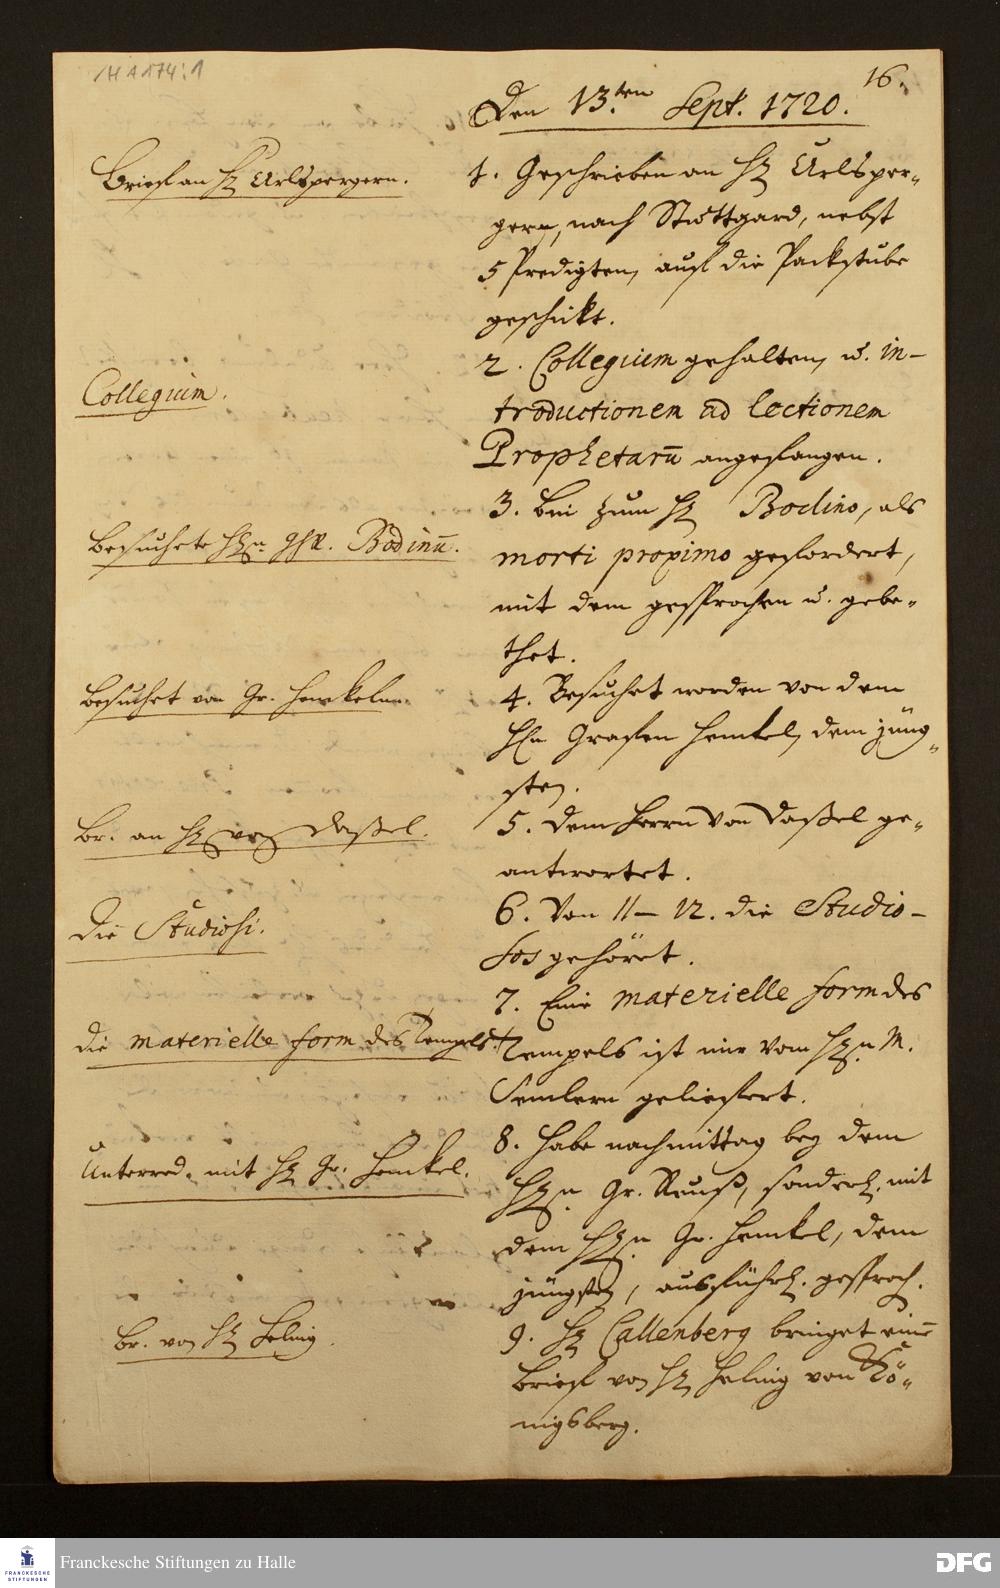 H A 174:1
16.
Den 13.ten Sept. 1720.
Brief an H. Urlspergern.
1. Geschrieben an H. Urlsper-
gern, nach Stuttgard, nebst
5 Predigten, auf die Packstube
geschickt.
Collegium.
2. Collegium gehalten, u. in-
troductionem ad lectionem
Prophetarū angefangen.
Besuchete Hn. Bodinū.
3. Bin zum H. Bodino, als
morti proximo gefordert,
mit dem gesprochen u. gebe-
thet.
Besuchet von Gr. Henkeln.
4. Besuchet worden von dem
Hn Grafen Henkel, dem jüng-
sten.
Br. an H. von Daßel.
5. Dem Herrn von Daßel ge-
antwortet.
Die Studiosi.
6. Von 11–12. die Studio-
sos gehöret.
die materielle form des Tempels.
7. Eine materielle form des
Tempels ist mir vom Hn. M.
Semlern geliefert.
Unterred. mit H. Gr. Henkel.
8. Habe nachmittag bey dem
Hn. Gr. Reuß, sonderl. mit
dem Hn. Gr. Henkel, dem
jüngsten, ausführl. gesproch.
Br. von H. Heling.
9. H. Callenberg bringet einē
Brief von H. Heling von Kö-
nigsberg.
FRANCKESCHE
STIFTUNGEN
Franckesche Stiftungen zu Halle
DFG